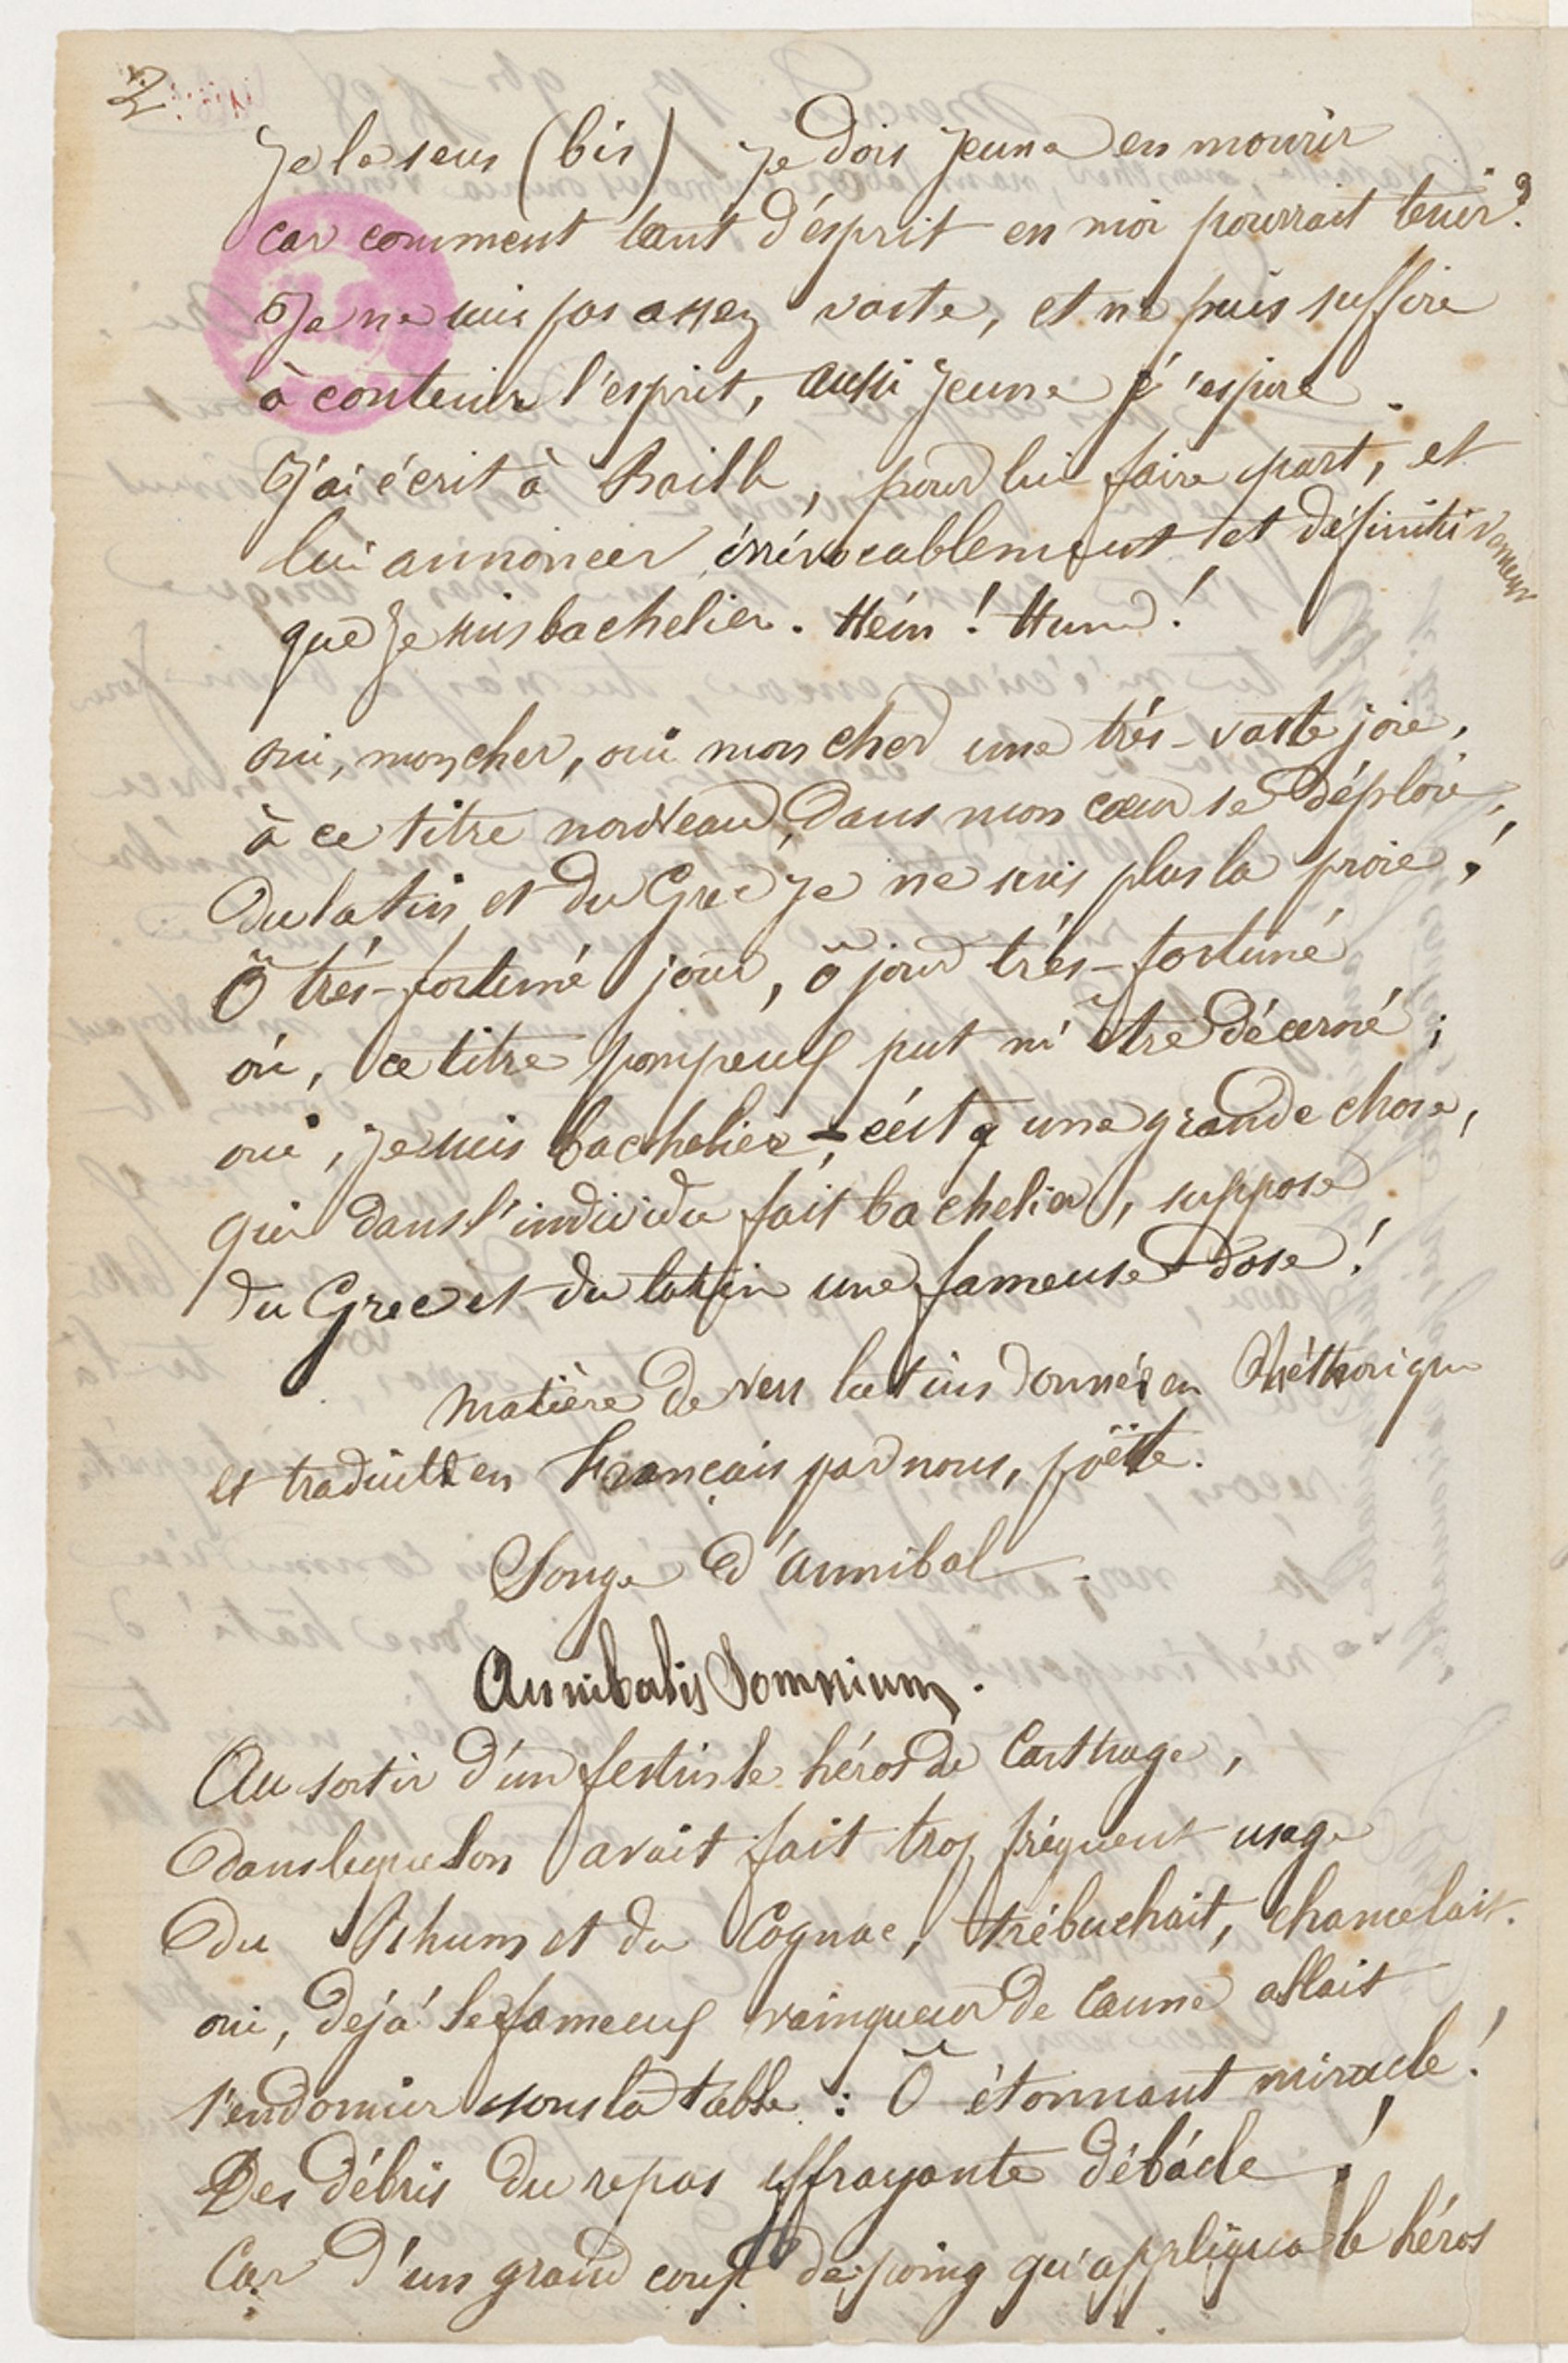 2
Je le sens (bis) je dois jeune en mourir
car comment tant d'esprit en moi pourrait tenir?
Je ne suis pas assez vaste, et ne puis suffire
à contenir l'esprit, aussi jeune j'espire.
J'ai écrit à Baille, pour lui faire part, et
lui annoncer irrévocablement et définitivement
que je suis bachelier. Hein! Hum!
oui, mon cher, oui mon cher une très-vaste joie,
à ce titre nouveau, dans mon cœur se déploie,
Du latin et du Grec je ne suis plus la proie!
Ô très-fortuné jour, ô jour très-fortuné
où, ce titre pompeux put m'être décerné;
oui, je suis bachelier, c'est une grande chose,
qui dans l'individu fait bachelier, suppose
du Grec et du latin une fameuse dose!
Matière de vers latins donnée en Rhéthorique
et traduite en Français par nous, poëte.
Songe d'Annibal.
Annibalis Somnium.
Au sortir d'un festin le héros de Carthage,
Dans lequel on avait fait trop fréquent usage
Du Rhum et du Cognac, trébuchait, chancelait.
oui, déjà le fameux vainqueur de Canne allait
s'endormir sous la table: Ô étonnant miracle!
Des débris du repas effrayante débâcle!
Car d'un grand coup de poing qu'appliqua le héros